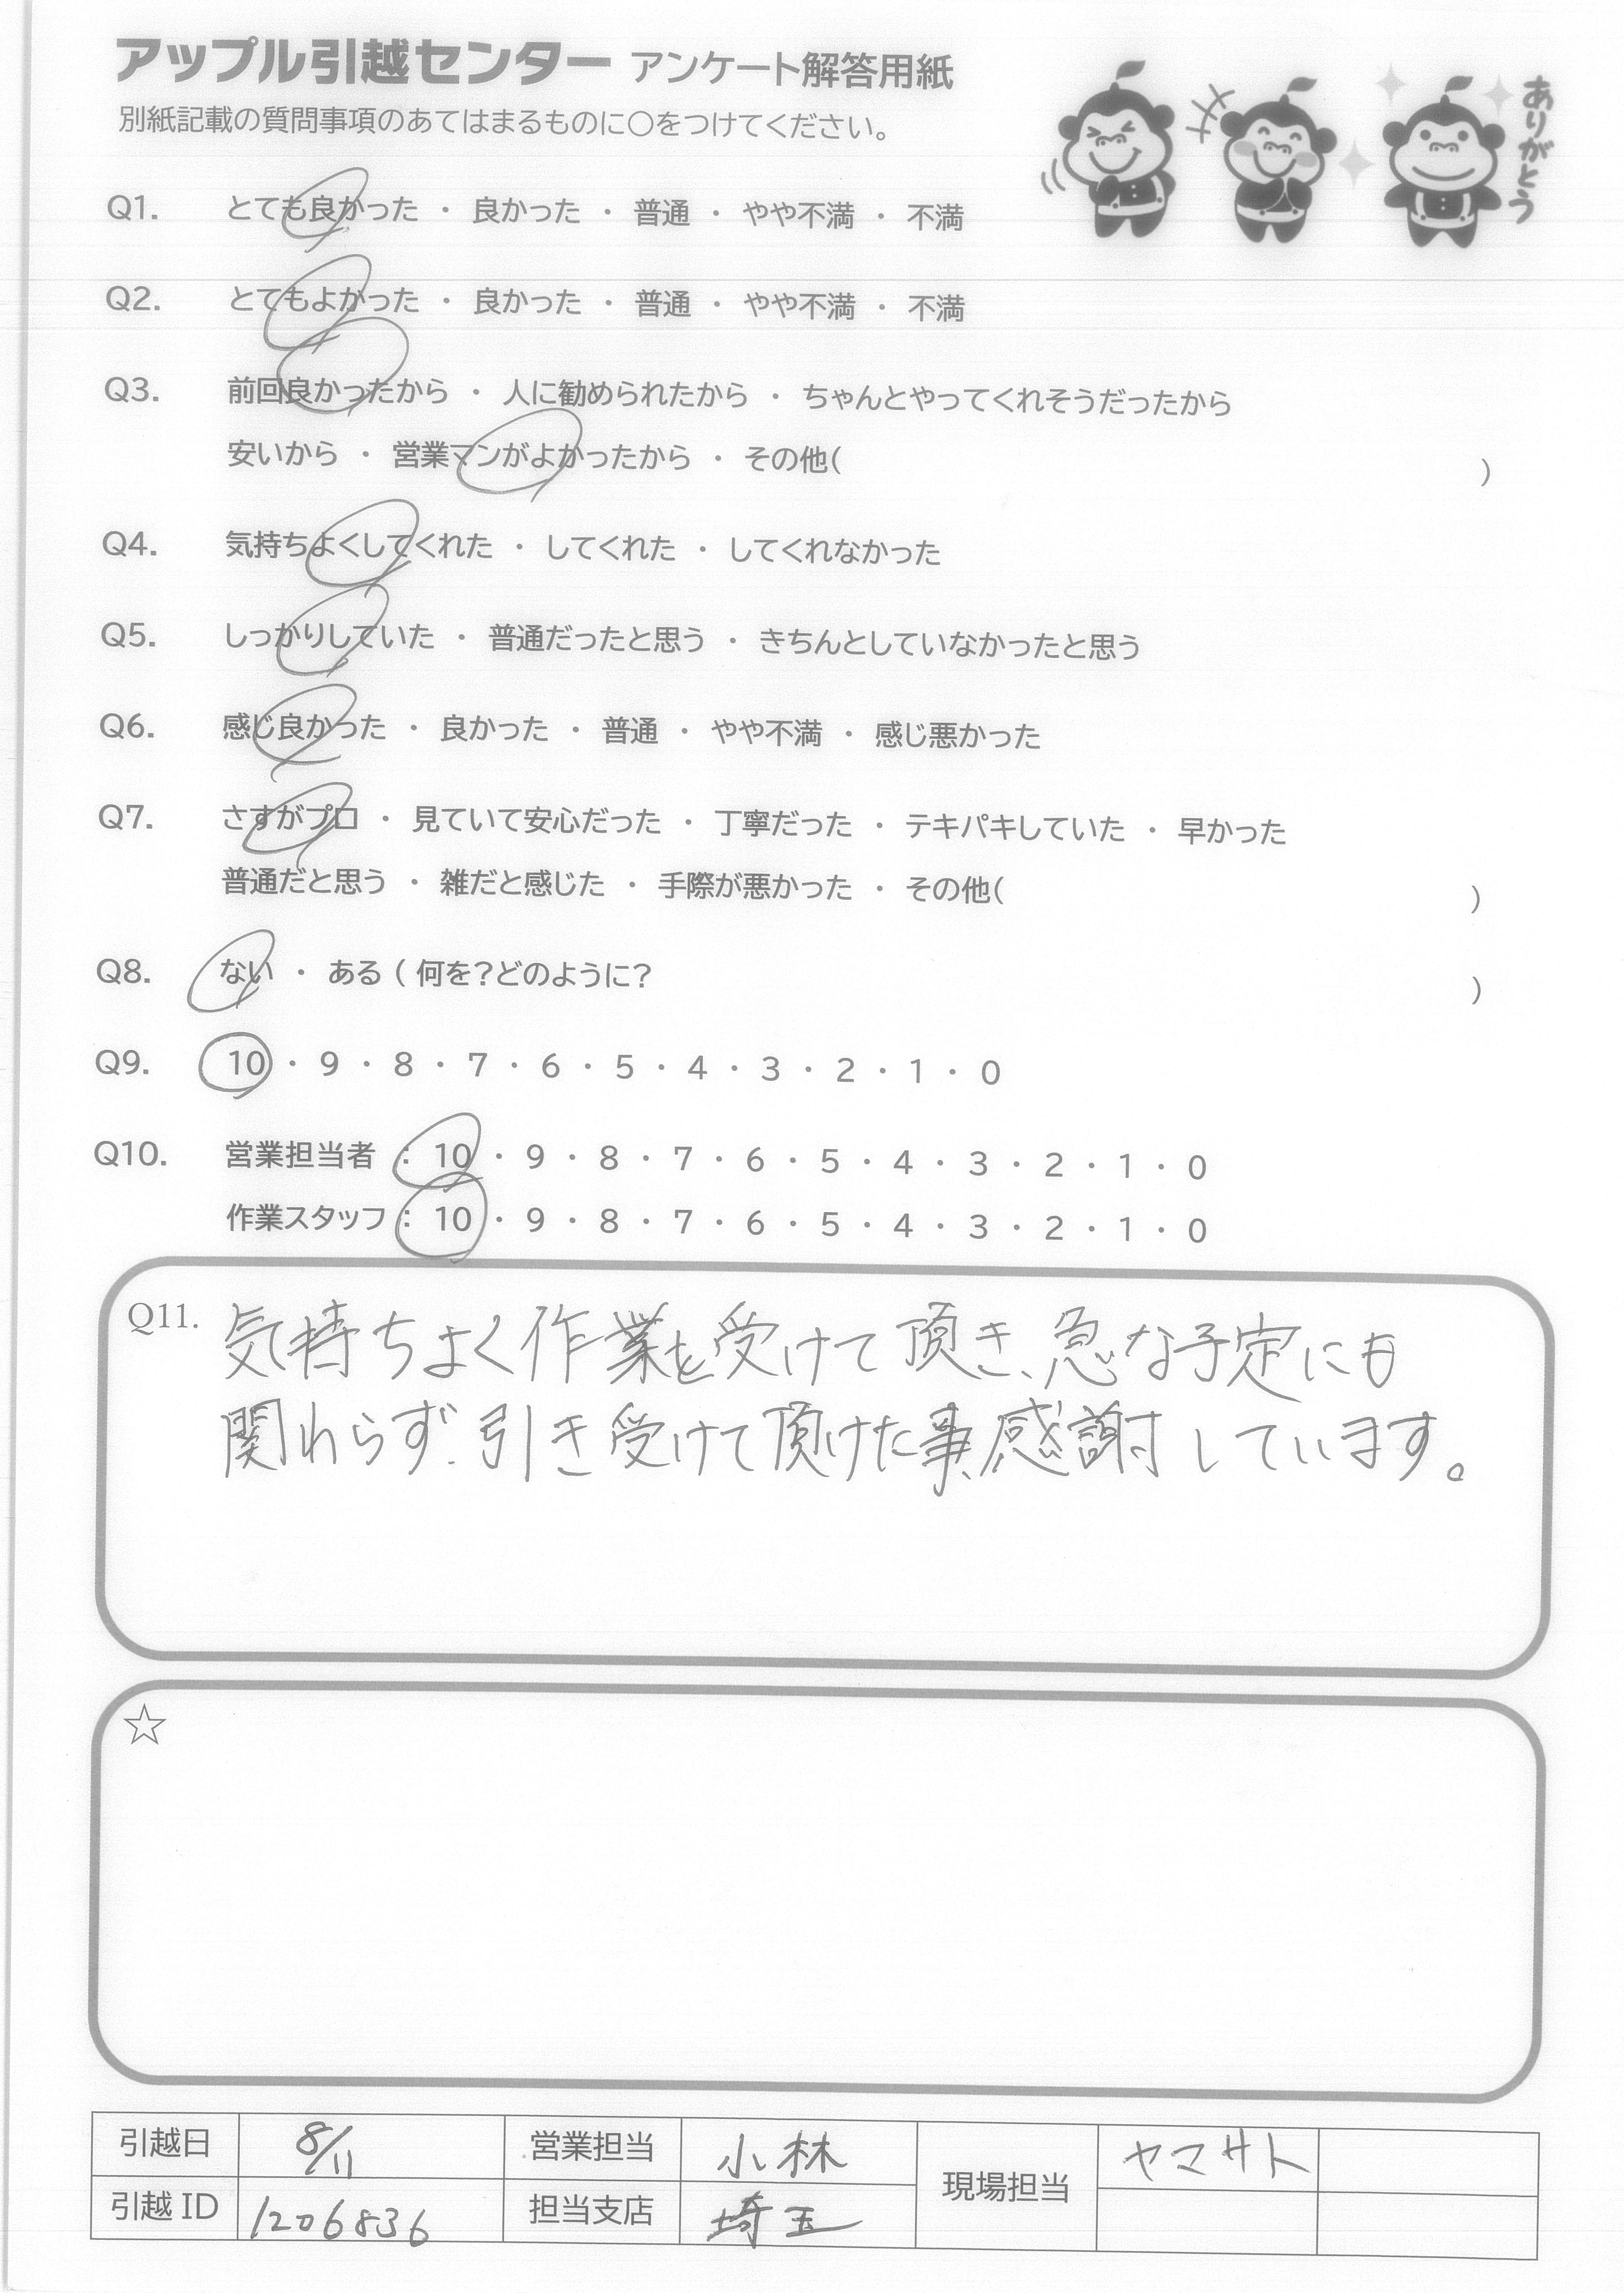 アップル引越センター アンケート解答用紙
別紙記載の質問事項のあてはまるものに〇をつけてください。
ありがとう
Q1. とても良かった ・ 良かった ・ 普通 ・ やや不満 ・ 不満
Q2. とてもよかった ・ 良かった ・ 普通 ・ やや不満 ・ 不満
Q3. 前回良かったから ・ 人に勧められたから ・ ちゃんとやってくれそうだったから
安いから ・ 営業マンがよかったから ・ その他( )
Q4. 気持ちよくしてくれた ・ してくれた ・ してくれなかった
Q5. しっかりしていた ・ 普通だったと思う ・ きちんとしていなかったと思う
Q6. 感じ良かった ・ 良かった ・ 普通 ・ やや不満 ・ 感じ悪かった
Q7. さすがプロ ・ 見ていて安心だった ・ 丁寧だった ・ テキパキしていた ・ 早かった
普通だと思う ・ 雑だと感じた ・ 手際が悪かった ・ その他( )
Q8. ない ・ ある ( 何を?どのように? )
Q9. 10 ・ 9 ・ 8 ・ 7 ・ 6 ・ 5 ・ 4 ・ 3 ・ 2 ・ 1 ・ 0
Q10. 営業担当者 : 10 ・ 9 ・ 8 ・ 7 ・ 6 ・ 5 ・ 4 ・ 3 ・ 2 ・ 1 ・ 0
作業スタッフ : 10 ・ 9 ・ 8 ・ 7 ・ 6 ・ 5 ・ 4 ・ 3 ・ 2 ・ 1 ・ 0
Q11. 気持ちよく作業を受けて頂き、急な予定にも
関わらず、引き受けて頂けた事、感謝しています。
☆
引越日 8/11 営業担当 小林 現場担当 ヤマサト
引越 ID 1206836 担当支店 埼玉